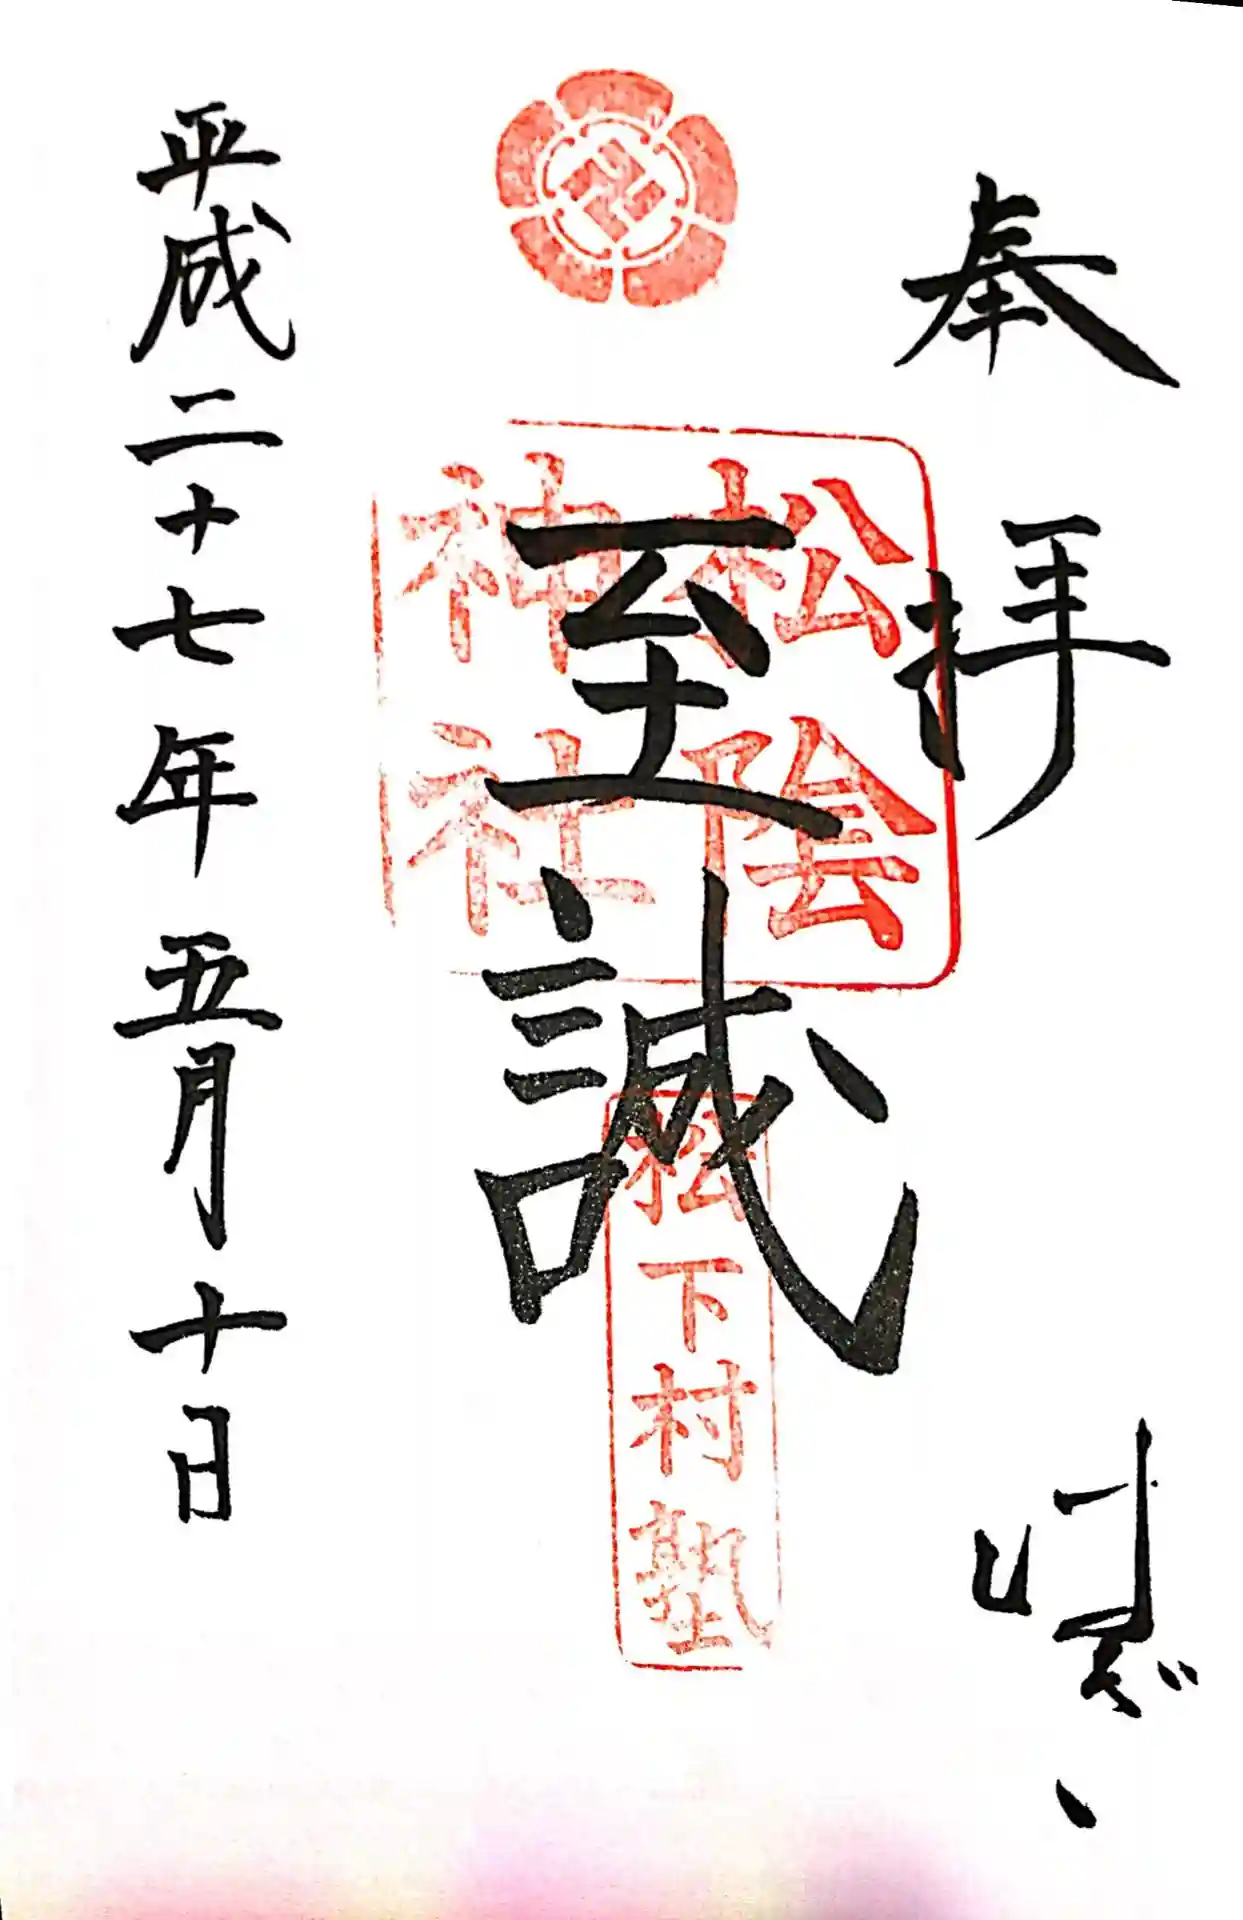 奉拝
松陰
神社
至誠
松下村塾
平成二十七年五月十日